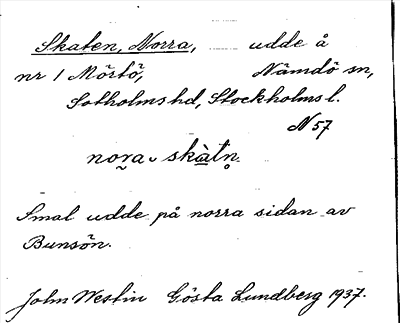 Skaten, Norra, udde å
nr 1 Mörtö, Nämdö sn,
Sotholms hd, Stockholms l.
N 57
nora skàtn̥.
Smal udde på norra sidan av
Bunsön.
John Westin Gösta Lundberg 1937.